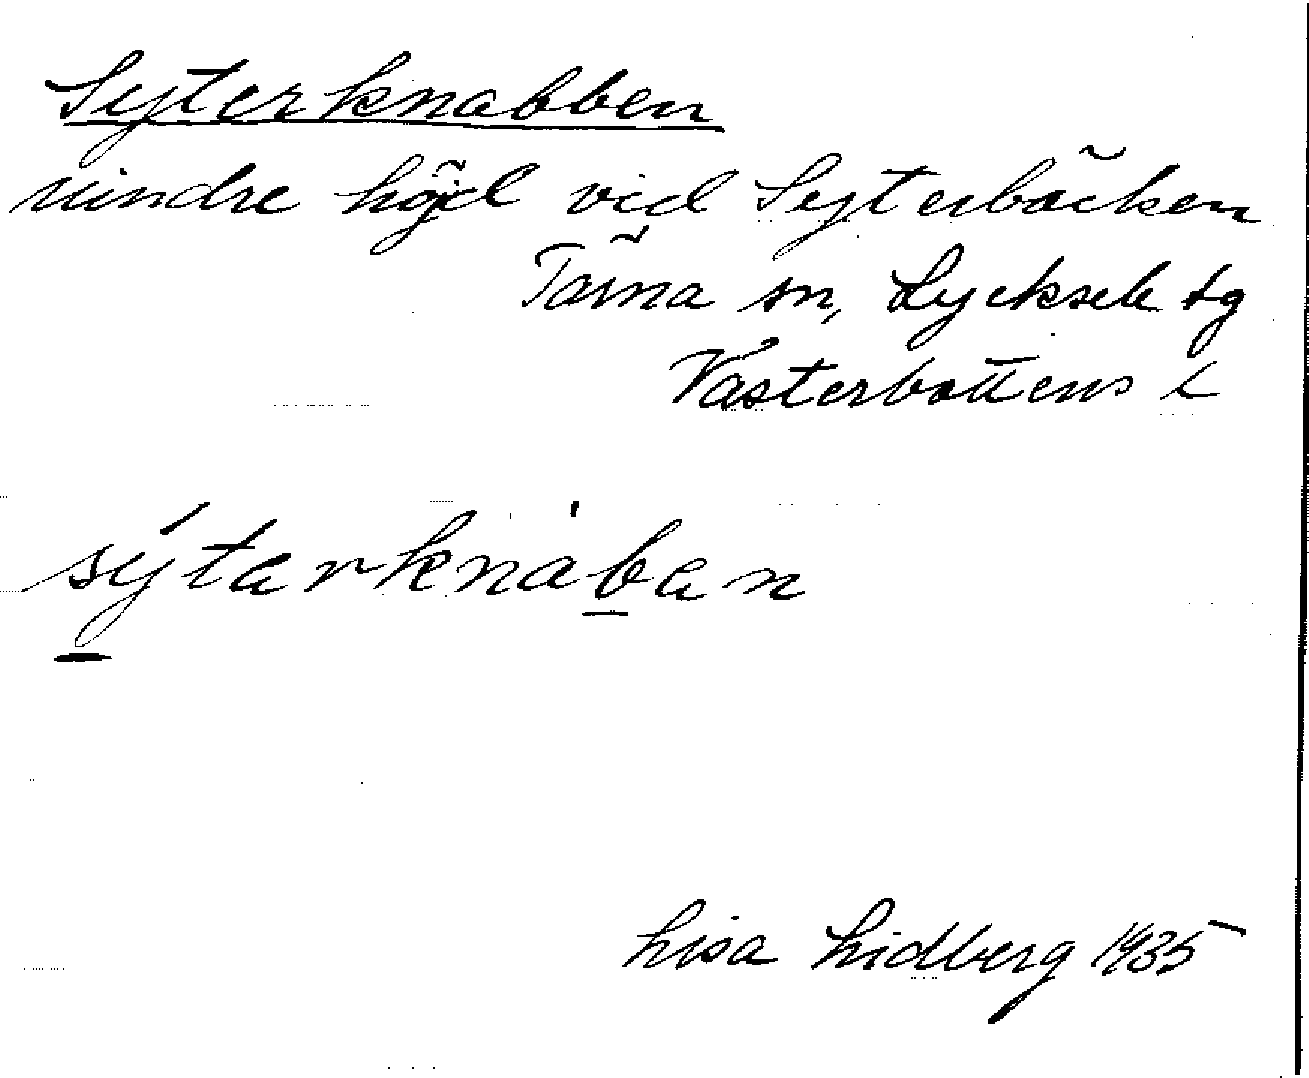 Syterknabben
mindre höjd vid Syterbäcken
Tärna sn, Lycksele tg
Västerbottens l
sýtarknàban
Lisa Lidberg 1935